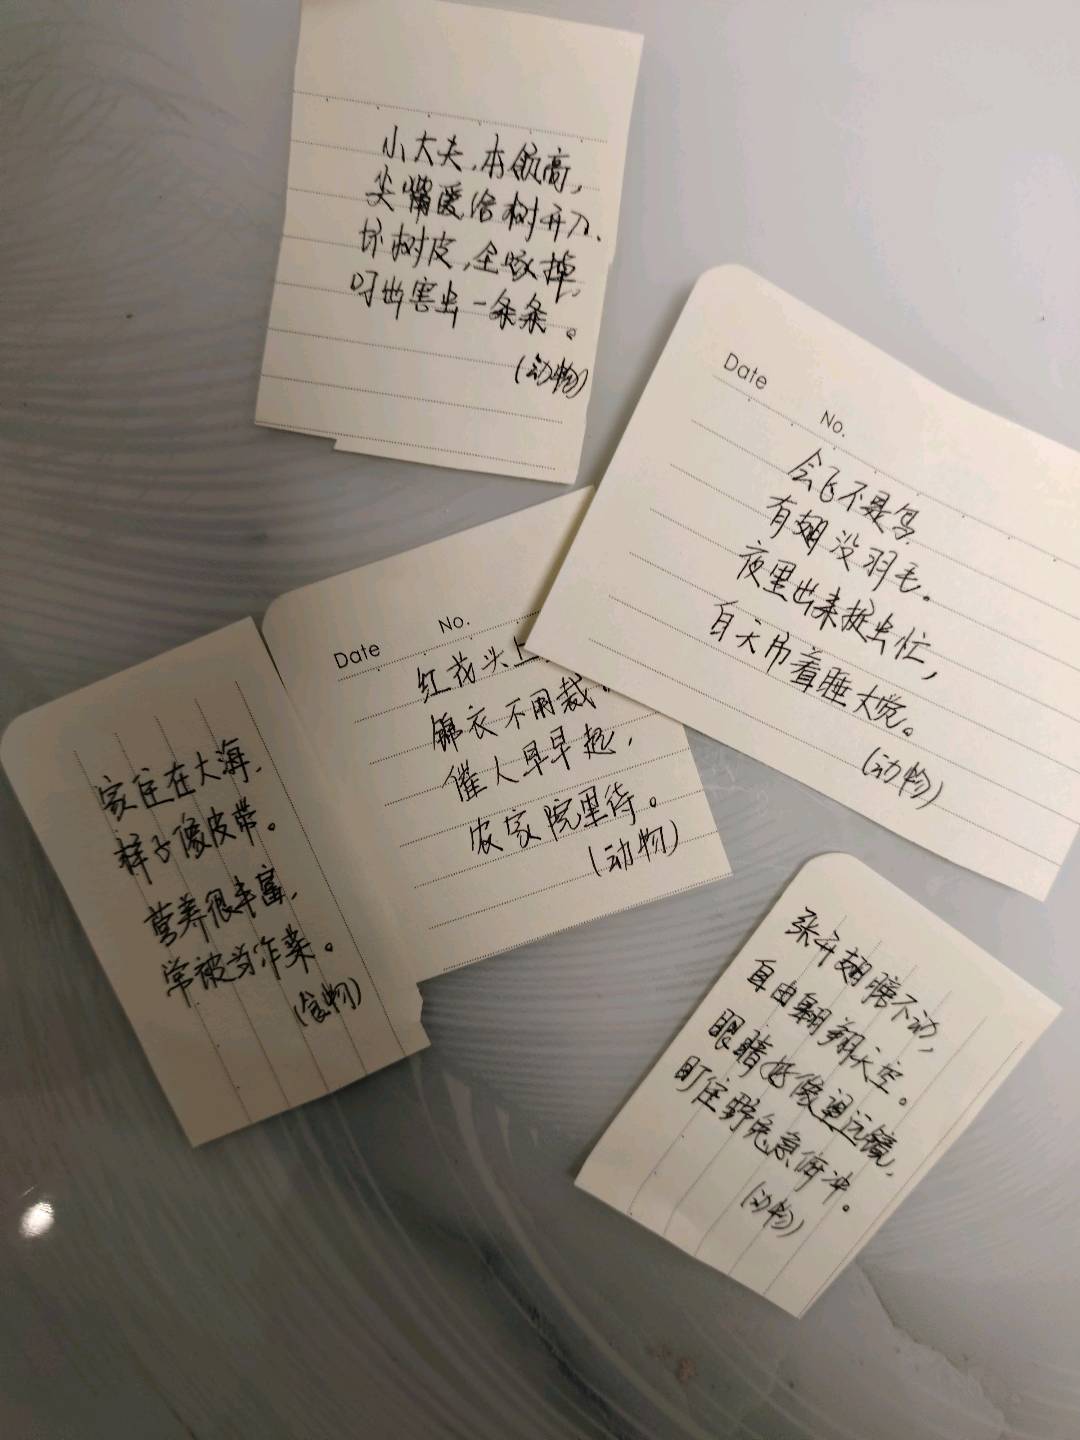 小大夫,本领高,
尖嘴爱给树开刀.
坏树皮,全啄掉,
叼出害虫一条条。
(动物)
Date
No.
会飞不是鸟,
有翅没羽毛。
夜里出来捉虫忙,
白天吊着睡大觉。
(动物)
Date
No.
红花头上
锦衣不用裁。
催人早早起,
农家院里待。
(动物)
家住在大海,
样子像皮带。
营养很丰富,
常被当作菜。
(食物)
张开翅膀不动,
自由翱翔天空。
眼睛好像望远镜,
盯住野兔急俯冲。
(动物)